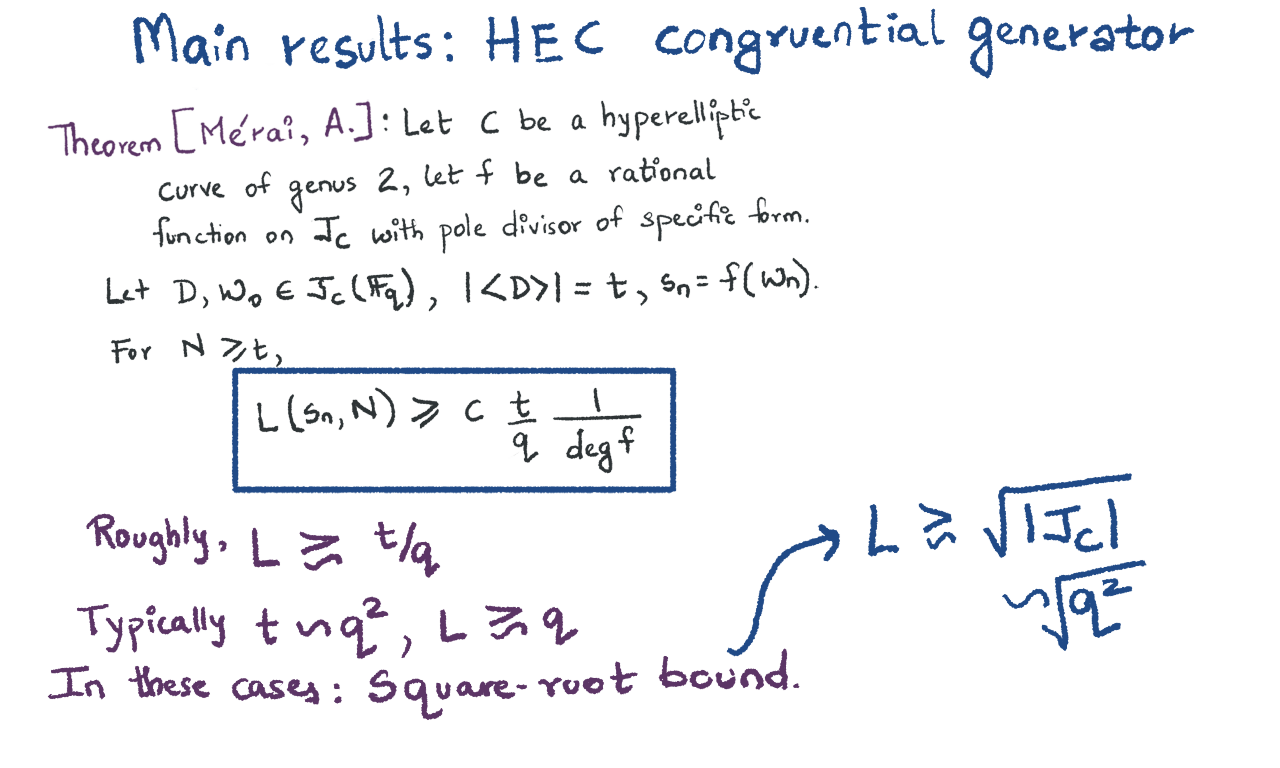 Main results: HEC congruential generator
Theorem [Mérai, A.]: Let C be a hyperelliptic
curve of genus 2, let f be a rational
function on J_C with pole divisor of specific form.
Let D, W₀ ∈ J_C(𝔽_q), |<D>| = t, s_n = f(W_n).
For N ⩾ t,
L(s_n, N) ⩾ c t/q 1/deg f
Roughly, L ≳ t/q
Typically t ∼ q², L ≳ q
In these cases: Square-root bound.
L ≳ √|J_C|
∼ √q²